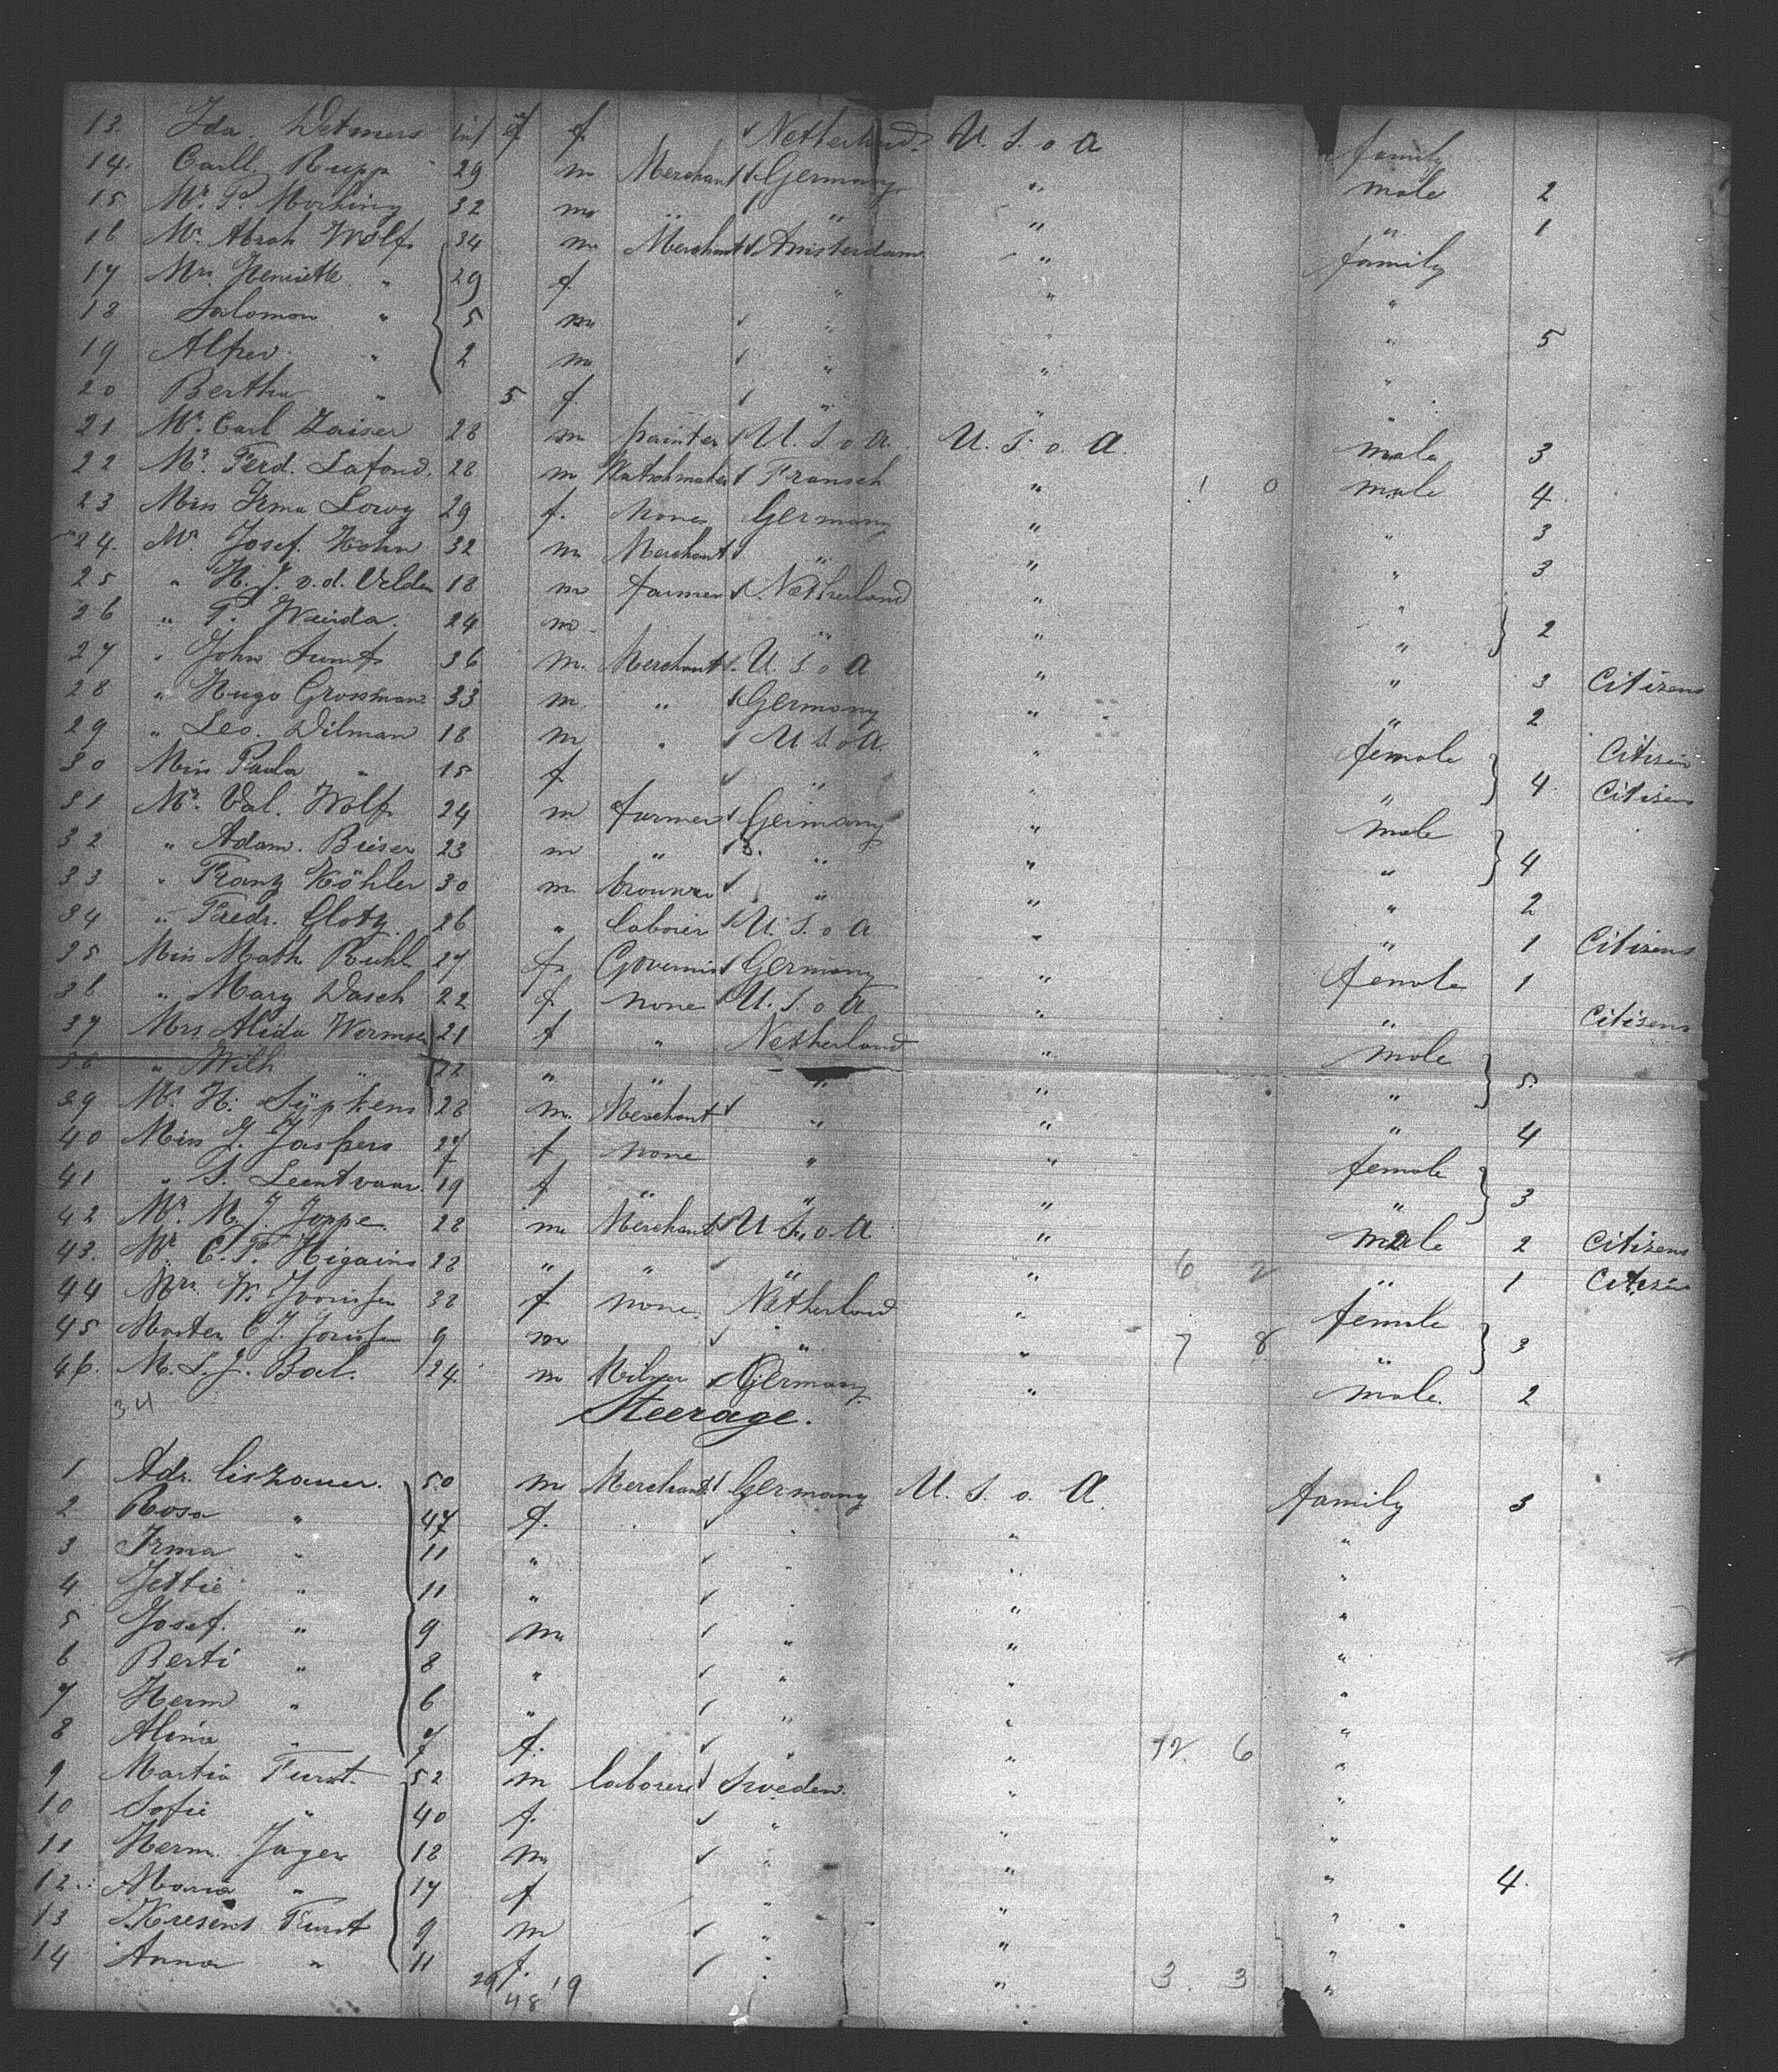 13. Ida. Detmers inf f. f. Netherland. U. S. o A family
14. Carll Rupp 29 m Merchant Germany " male 2
15 Mr. P. Morhing 32 m " " " " 1
16 Mr. Abrah Wolf 34 m Merchant Amsterdam " family
17 Mrs Henriette " 29 f. " " "
18 Salomon " 5 m " " " 5
19 Alfred " 2 m " " "
20 Bertha " 5 f. " " "
21 Mr. Carl Zaiser 28 m painter U. S. o A. U. S. o. A. male 3
22 Mr. Ferd. Lafond. 28 m Watschmaker Fransch " 1 0 male 4
23 Miss Irma Lowy 29 f. None Germany " " 3
24. Mr. Josef. Kohn 32 m Merchant " " " 3
25 " H. J. v. d. Velden 18 m farmer Netherland " "
26 " P. Weirda. 24 m " " " 2
27 " John 36 m. Merchant U. S o A " " 3 Citizens
28 " Hugo Grossman 33 m. " Germany " " 2
29 " Leo. Dilman 18 m " U S. o A. " female Citizen
30 Miss Paula " 15 f " " " 4. Citizens
31 Mr. Val. Wolf 24 m farmer Germany " male
32 " Adam. Beiser 23 m " " " " 4
33. " Franz Köhler 30 m brouwer " " " 2
34 " Fredr. Glotz. 26 " laborer U. S. o A " " 1 Citizens
35 Miss Math. Ruhl 27 f. Governis Germany " female 1
36 " Mary Dasch 22 f none U. S o A " " Citizens
37 Mrs. Alida 21 f " Netherland " male
38 " Wilh " 22 " " " " " 5
39 Mr. H. Sijpkens 28 m. Merchant " " " 4
40 Miss J. Jaspers 27 f none " " female
41 " S. Leentvaar. 19 f " " " " 3
42 Mr. M. J. Joppe. 28 m Merchant U S. o. A " male 2 Citizens
43. Mr. C. F. Higains 28 " " " " 6 2 " 1 Citizen
44 Mrs. W. Jorissen 38 f none Netherland " female
45 Master C J. Jorissen 9 m " " 7 8 " 3
46. M. L. J. Bal. 24. m Milner Germany " male. 2
34
Steerage.
1 Adr. Liszauer. 50 m Merchant Germany U. S. o. A. family 3
2 Rosa " 47 f. " " "
3 Irma " 11 " " " "
4 Jettie " 11 " " " "
5 Josef. " 9 m " " "
6 Berti " 8 " " " "
7 Herm " 6 " " " "
8 Alina " 7 f. " " 12 6 "
9 Martin Furst. 52 m laborer Sweden. " "
10 Sofie " 40 f. " " "
11 Herm. Jager 18 m " " "
12. Maria " 17 f " " " 4.
13 Kresens Furst 9 m " " "
14 Anna " 11 f. " " 3. 3. "
29 19
48